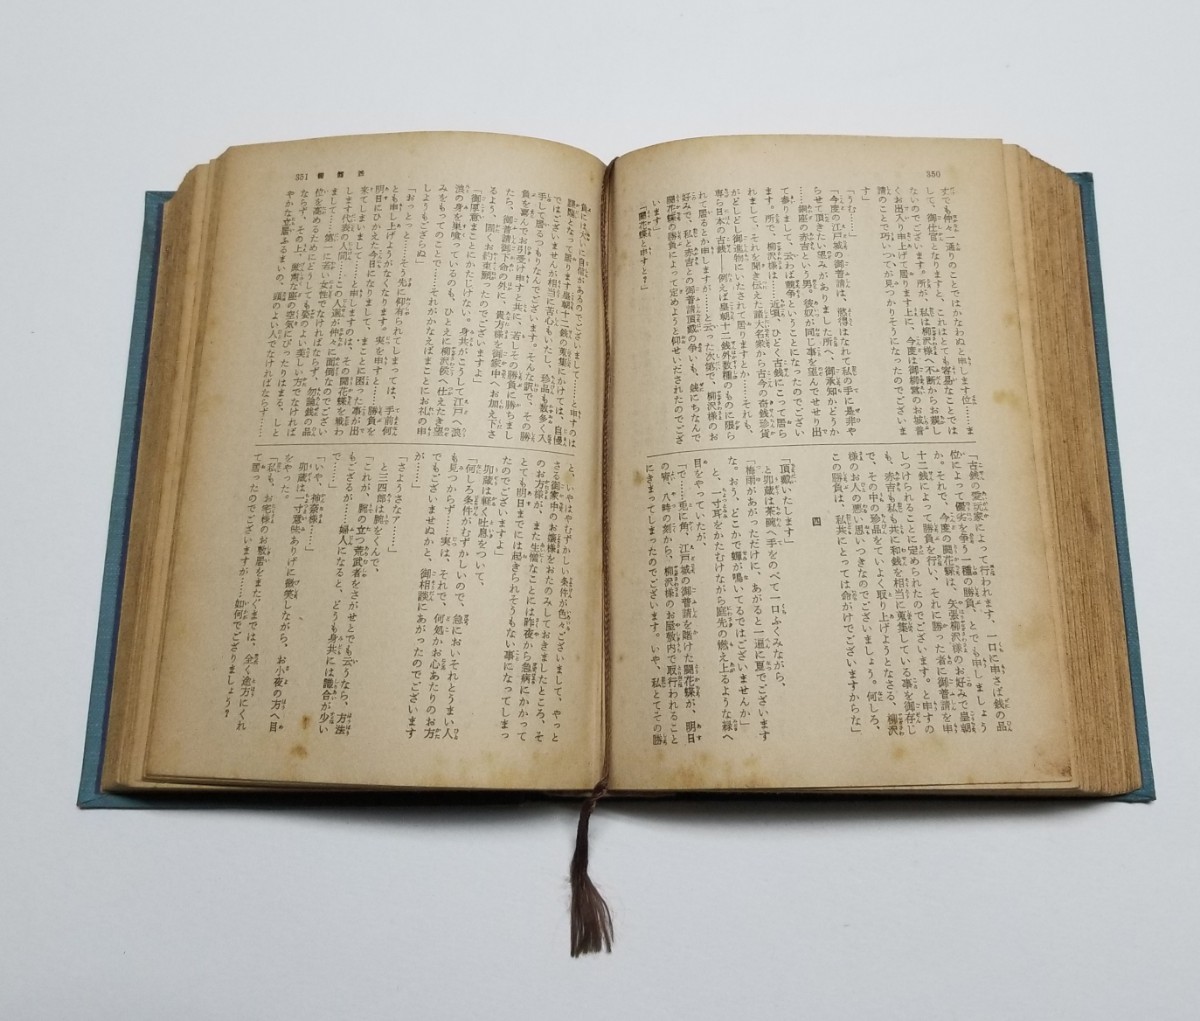 350
丈でも仲々一通りのことではかなわぬと申します位……ま
して、御仕官となりますと、これはとても容易なことでは
ないのでございます。所が、私は柳様へ不断からお親し
くお出入り申上げて居ります上に、今度は御柳営のお城普
請のことで巧いつてが見つかりそうになったのでございま
す」
「うむ……」
「今度の江戸城の御普請は、慾得はなれて私の手に是非や
らせて頂きたい望みがありました所へ、御承知かどうか
……銀座の赤吉という男。彼奴が同じ事を望んでせせり出
て参りまして、云わば競争ということになったのでござい
ます。所で、柳沢様は……近頃、ひどく古銭にこって居ら
れまして、それを聞き伝えた諸大名衆から古今の奇銭珍貨
がどしどし御進物にいたされて居りますとか……それも、
専ら日本の古銭――例えば皇朝十二銭外数種のものに限ら
れて居るとか申しますが……と云った次第で、柳沢様のお
好みで、私と赤吉との御普請頂戴の争いも、銭にちなんで
開花蝶の勝負によって定めようと仰せいだされたのでござ
います」
「開花蝶と申すと？」
「古銭の愛玩家によって行われます、一口に申さば銭の品
位によって優劣を争う一種の勝負、とでも申しましょう
か。それで、今度の開花蝶は、矢張柳沢様のお好みで皇朝
十二銭によって勝負を行い、それに勝った者に御普請を申
しつけられることに定められたのでございます。と申すの
も、赤吉も私も共に和銭を相当に蒐集している事を御存じ
で、その中の珍品をていよく取り上げようとなさる、柳沢
様のお人の悪い思いつきなのでございましょう。何しろ、
この勝負は、私共にとっては命がけでございますからな」
四
「頂戴いたします」
と卯蔵は茶碗へ手をのべて一口ふくみながら、
「梅雨があがっただけに、あがると一遍に夏でございます
な。おう、どこかで蟬が鳴いてるではございませんか」
と、一寸耳をかたむけながら庭先の燃え上るような緑へ
目をやっていたが、
「で……兎に角、江戸城の御普請を賭けた開花蝶が、明日
の宵、八時の刻から、柳沢様のお屋敷内で取行われること
にきまってしまったのでございます。いや、私とてその勝
351
負には大いに自信があるのでございまして……申すのは
課題となって居ります皇朝十二銭の蒐集にかけては、自慢
ではございませんが相当に苦心もいたし、珍品も数多く入
手して居るつもりなんでございます。そんな訳で、その勝
負を喜んでお引受け申すと共に、若しその勝負に勝ちまし
たら、御普請御下命の外に、貴方様を御家中へお加え下さ
るよう、固くお約束願ったのでございますよ」
「御厚意まことにかたじけない。身共がこうして江戸へ浪
浪の身を巣喰っているのも、ひとえに柳沢侯へ仕えたき望
みをもってのことで……それがかなえばまことにお礼の申
しようもござらぬ」
「おっとっと……そう先に仰有られてしまっては、手前何
とも申し上げようがなくなります。実を申すと……勝負を
明日にひかえた今日になりまして、まことに困った事が出
来てしまいまして……と申しますのは、その開花蝶を戦わ
します代表の人間……この人選が仲々に面倒なのでござい
まして……第一に若い女性でなければならず、勿論銭の品
位を高めるためにどうしても姿のよい美しい方でなければ
ならず、その上、貴賓な座の空気にぴったりはまる、しと
やかな立居ふるまいの、頭のよい人でなければならず……
と、いやはやむずかしい条件が色々ございまして、やっと
さる御家中のお嬢様をおたのみしておきましたところ、そ
のお方様が、また生憎なことには昨夜から急病にかかって
とても明日までには起きられそうもない事になってしまっ
たのでございますよ」
卯蔵は軽く吐息をついて、
「何しろ条件がむずかしいので、急においそれとうまい人
も見つからず……実は、それで、何処かお心あたりのお方
でもございませぬかと、御相談にあがったのでございます
が……」
「さようさなァ……」
と三四郎は腕をくんで、
「これが、腕の立つ荒武者をさがせとでも云うなら、方法
もござるが……婦人になると、どうも身共には識合が少い
で……」
「いや、神奈様……」
卯蔵は一寸意味ありげに微笑しながら、お小夜の方へ目
をやった。
「私も、お宅様のお敷居をまたぐまでは、全く途方にくれ
て居ったのでございますが……如何でござりましょう？